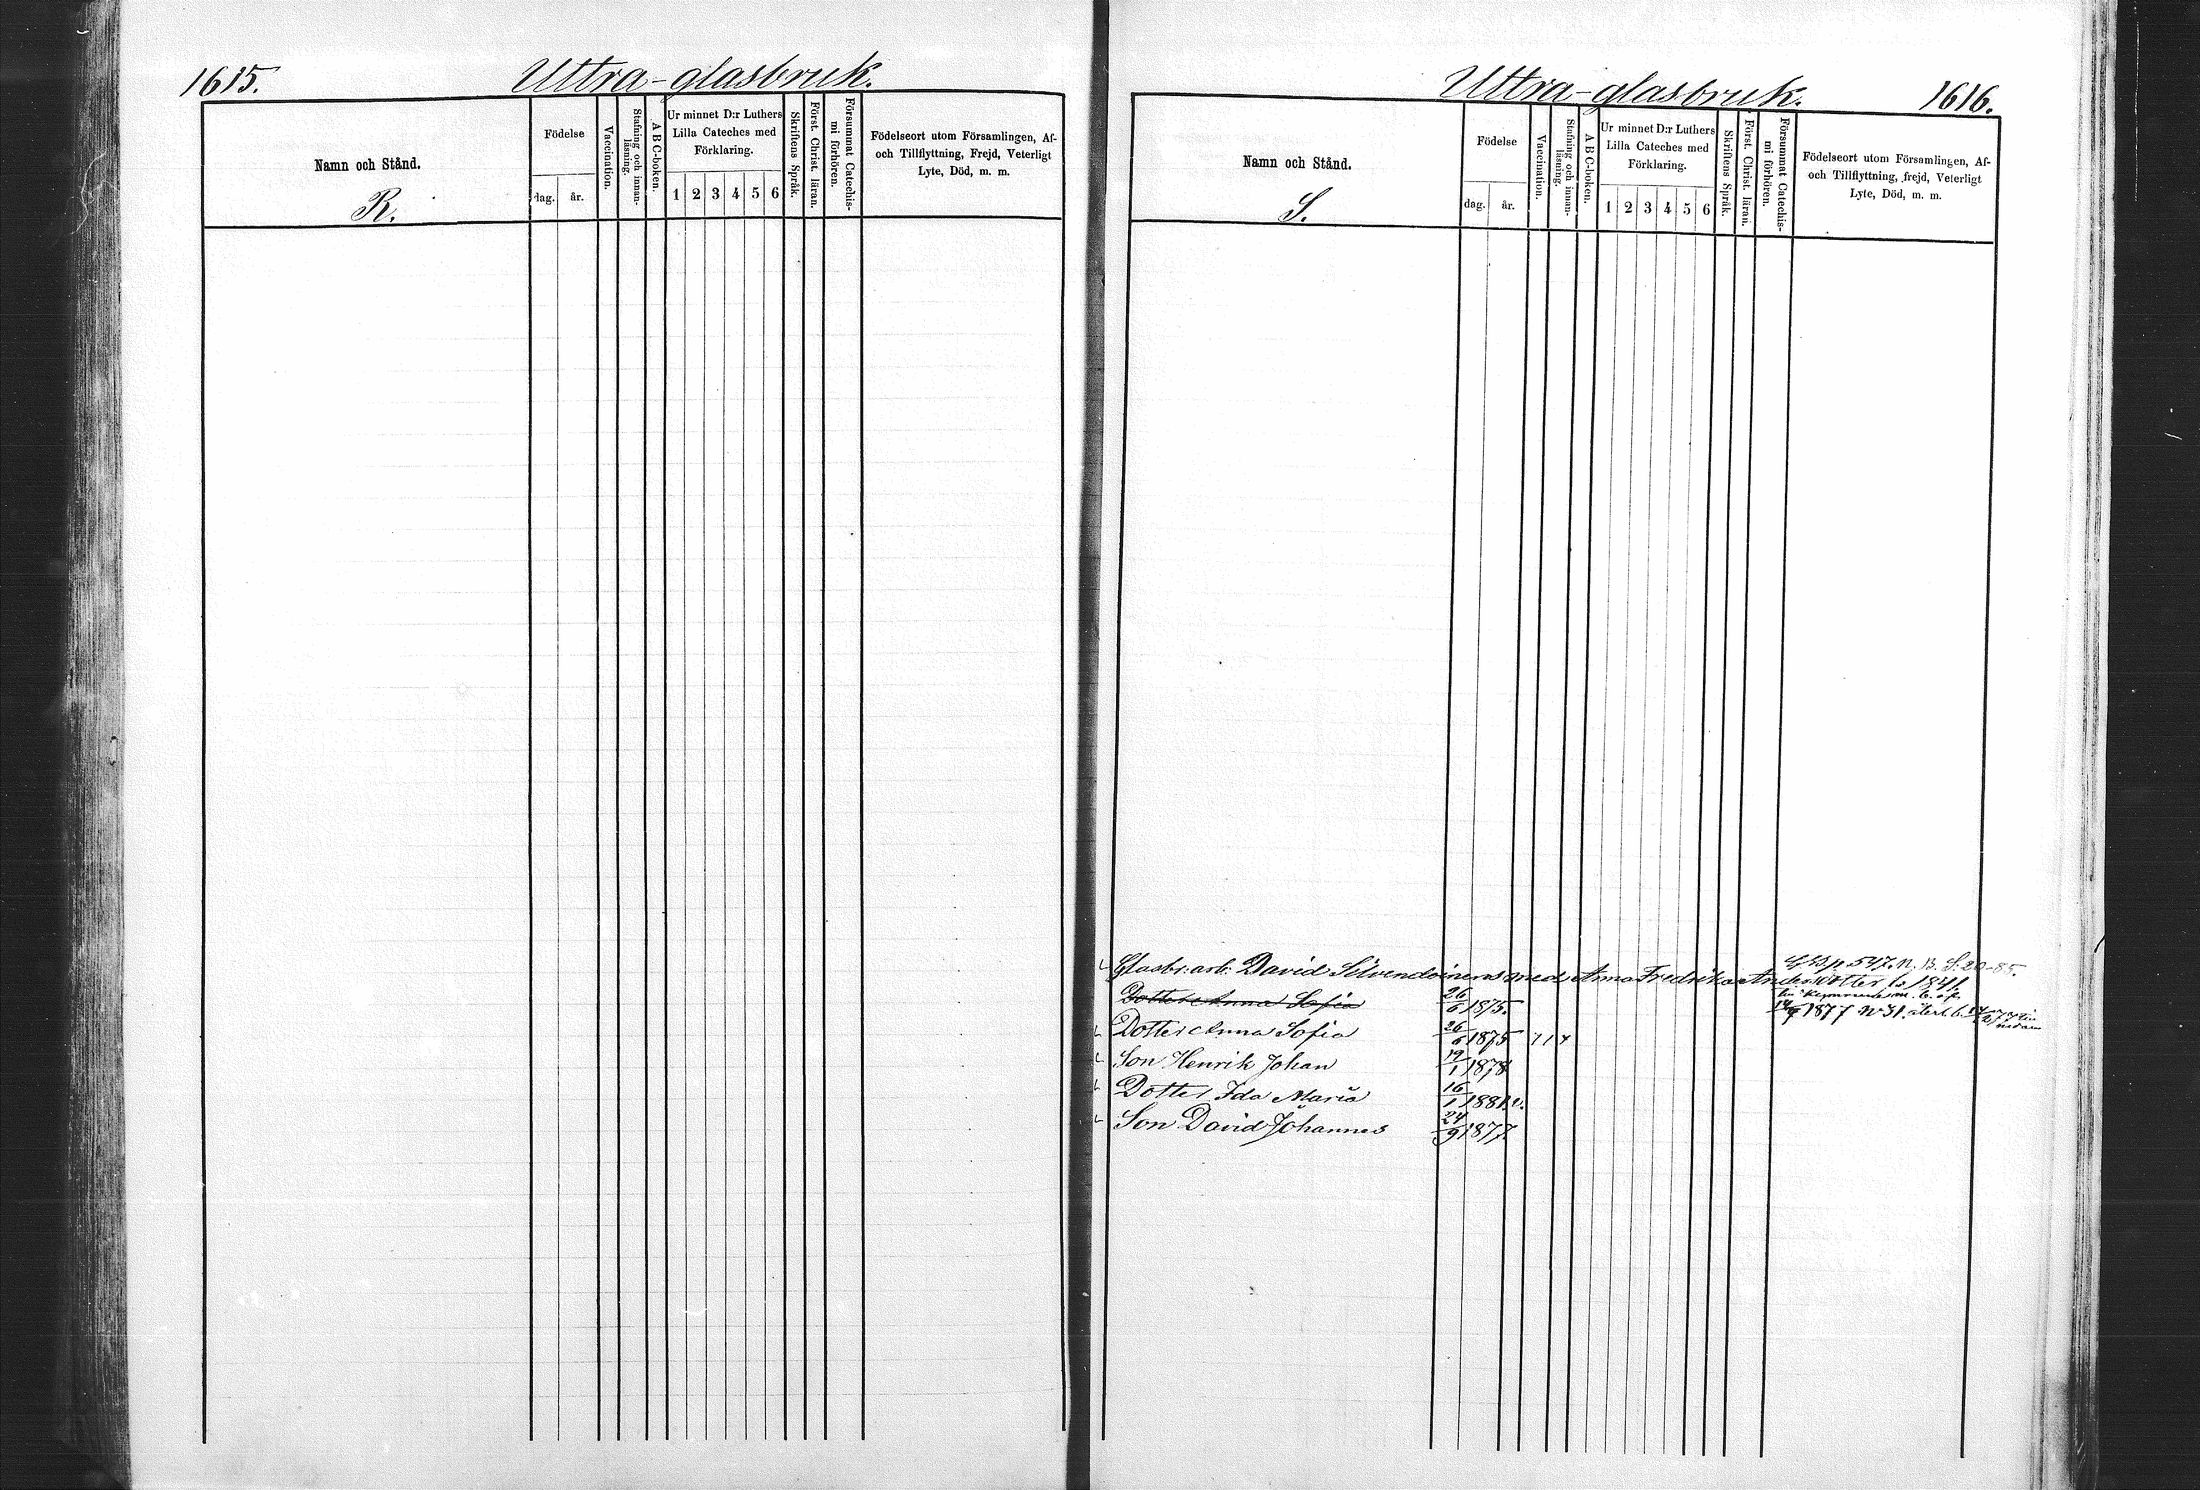 1615.
Uttra-glasbruk.
Namn och Stånd.
R.
Födelse
dag. år.
Vaccination.
Stafning och innan-
läsning.
A B C-boken.
Ur minnet D:r Luthers
Lilla Cateches med
Förklaring.
1 2 3 4 5 6
Skriftens Språk.
Först. Christ. läran.
Försummat Catechis-
mi förhören.
Födelseort utom Församlingen, Af-
och Tillflyttning, Frejd, Veterligt
Lyte, Död, m. m.
Uttra-glasbruk.
1616.
Namn och Stånd.
S.
Födelse
dag. år.
Vaccination.
Stafning och innan-
läsning.
A B C-boken.
Ur minnet D:r Luthers
Lilla Cateches med
Förklaring.
1 2 3 4 5 6
Skriftens Språk.
Först. Christ. läran.
Försummat Catechis-
mi förhören.
Födelseort utom Församlingen, Af-
och Tillflyttning, frejd, Veterligt
Lyte, Död, m. m.
p. 547. N. B. S. 20-85.
Glasbr:arb: David Silvendoinens med Anna Fredrika Andersdotter b. 1841.
Dotter Anna Sofia 26/6 1875.
1877 N:o 31.
Dotter Anna Sofia 26/6 1875
Son Henrik Johan 19/1 1878
Dotter Ida Maria 16/1 1881 v.
Son David Johannes 24/9 1877.